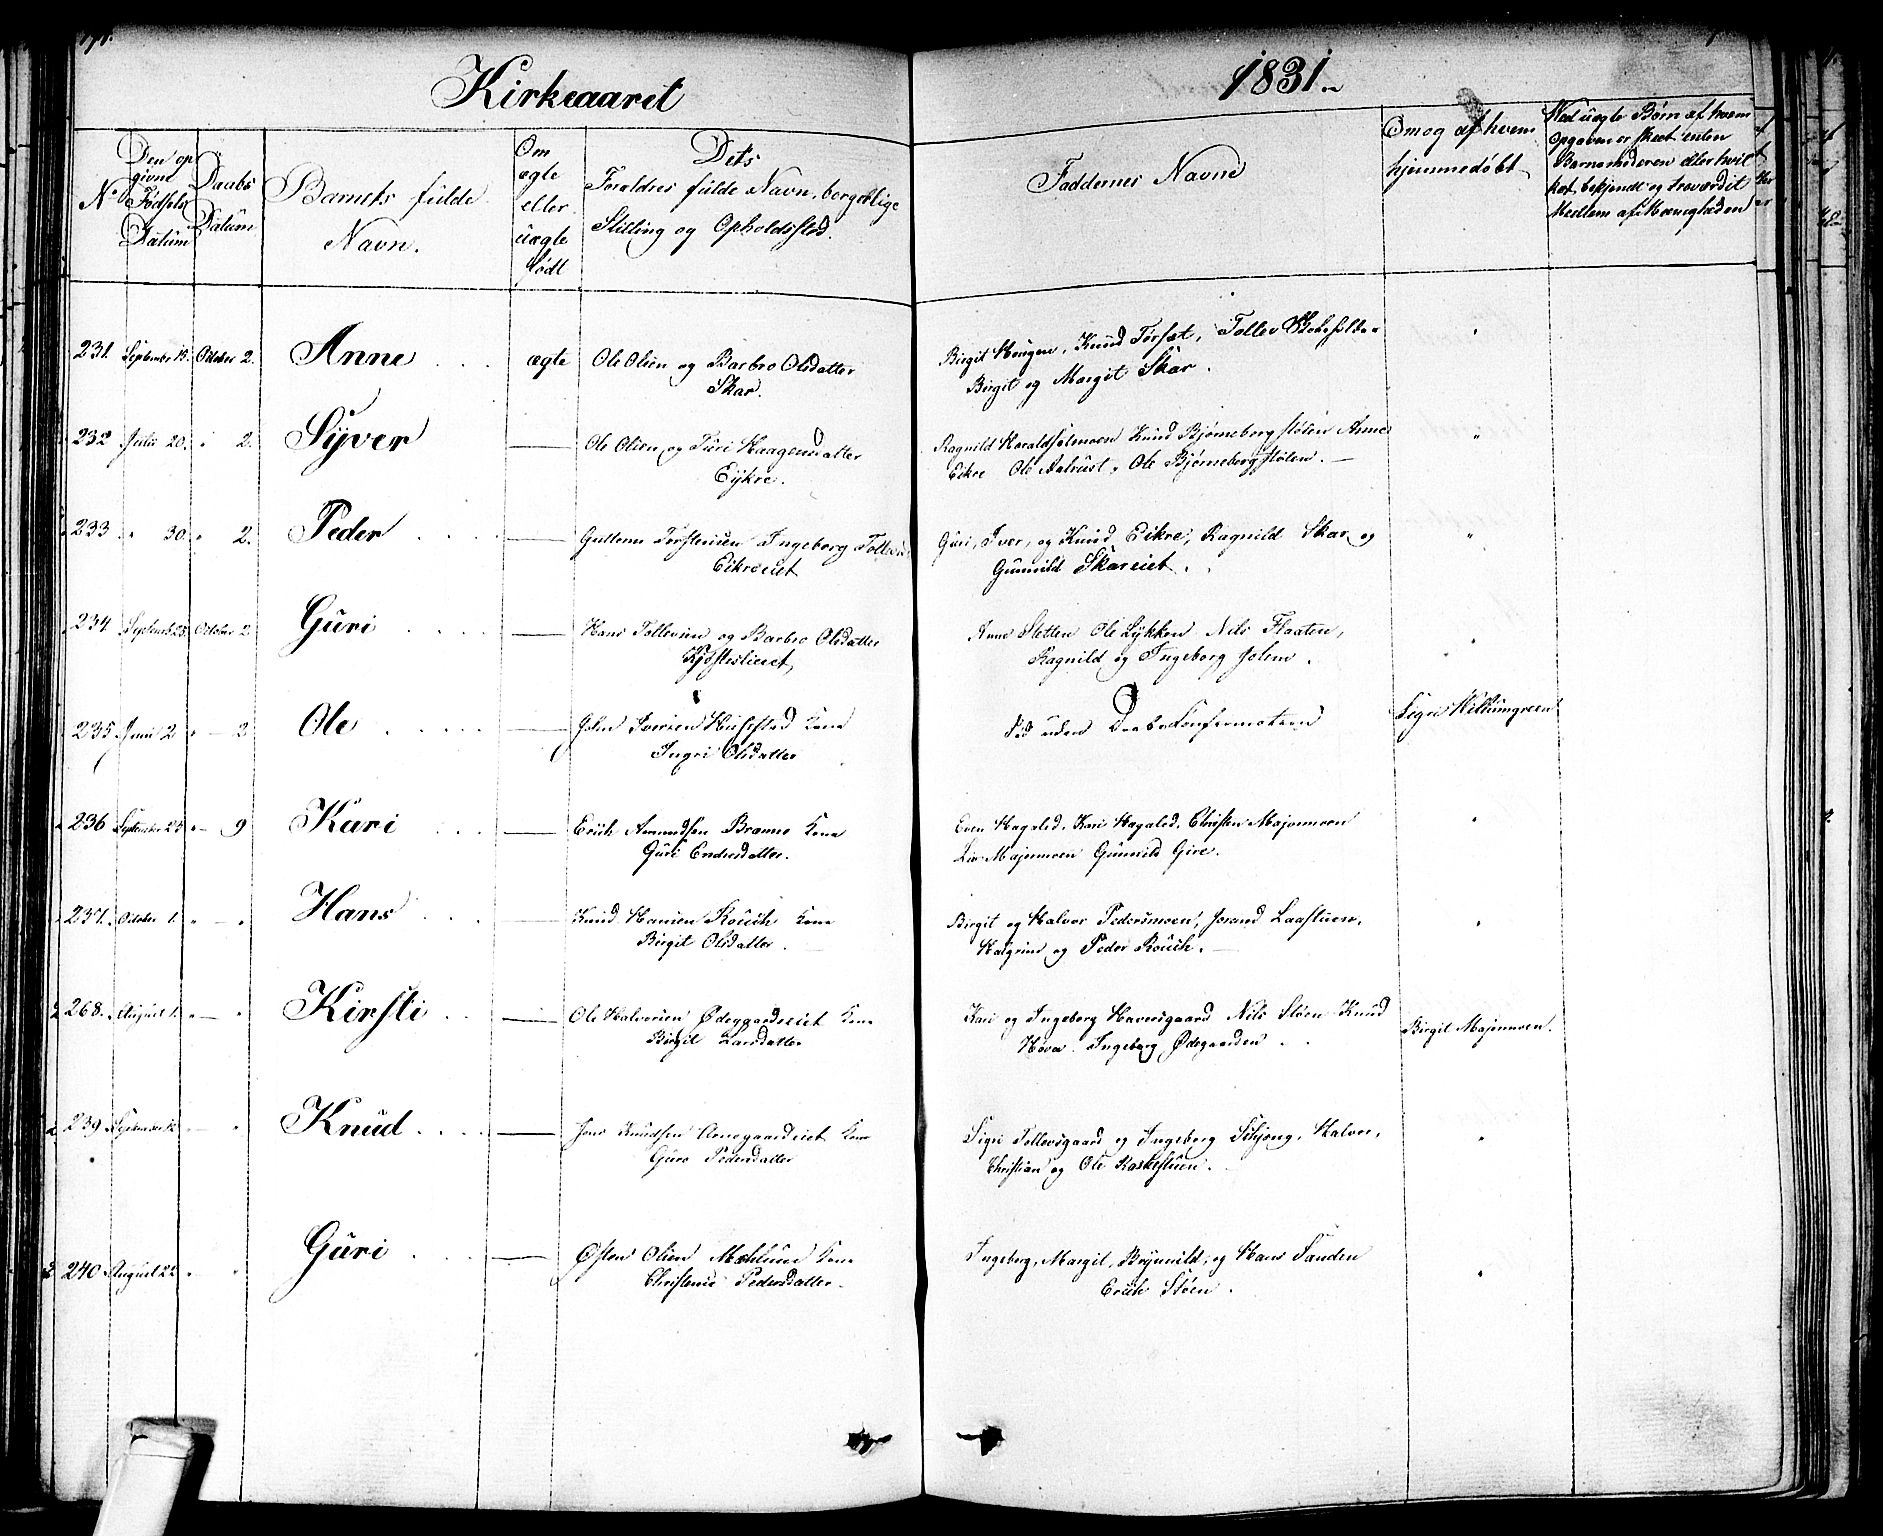 Kirkeaaret 1831
No
Den op
givne
Födsels
Datum
Daabs
Datum
Barnets fulde
Navn.
Om
ægte
eller
uægte
födt
Dets
Foraldres fulde Navn, borgerlige
Stilling og Opholdssted.
Faddernes Navne
Om og af hvem
hjemmedöbt
Ved uægte Börn af hvem
Opgaven er skeet enten
Barnemoderen eller hvil
ket bekjendt og troværdit
Medlem af Menigheden
231. September 15. October 2. Anne ægte Ole Olsen og Barbro Olsdatter
Skar.
Birgit Haugen, Knud Torset, Tollev
Birgit og Margit Skar.
232 Julii 20. " 2. Syver — Ole Olsen og Turi Haagensdatter
Eijkre.
Ragnild Haraldsetmoen Knud Bjørnebergstølen Anne
Eikre Ole Aalrust, Ole Bjørnebergstølen. —
233 " 30. " 2. Peder — Guttorm Torstensen Ingeborg
Eikreeiet
Guri, Iver, og Knud Eikre, Ragnild Skar og
Gunnild Skareiet.
234 Septemb 25. October 2 Guri — Hans Tollevsen og Barbro Olsdatter
Anne Sletten Ole Lykken Nils Flaaten,
Ragnild og Ingeborg Jolem.
235 Junii 2 " — 2 Ole — John Iversen Kone
Ingri Olsdatter
Død uden Daabs Confermation
Sigri
236 September 25 " — 9 Kari — Erich Amundsen Kone
Guri Endresdatter.
Even Hagaled, Kari Hagaled, Christen Majormoen
Liv Majormoen Gunnild Give.
237. October 1. " — " Hans — Knud Hansen Kone
Birgit Olsdatter. —
Birgit og Halvor Pedersmoen, Jorand Laastuen,
og Peder
268. August 1. " — " Kirsti — Ole Halvorsen Ødegaardseiet Kone
Birgit Larsdatter
Kari og Ingeborg Haversgaard Nils Støen Knud
Hove. Ingeborg Ødegaarden
Birgit Majormoen.
239 September 12 — " Knud — Jens Knudsen Arnegaardeiet Kone
Guro Pedersdatter
Sigri Tollevsgaard og Ingeborg Skjong, Halvor,
Christian og Ole Kaskestuen.
240 August 22 " " Guri — Østen Olsen Kone
Christense Pedersdatter.
Ingeborg, Margit, Brynnild, og Hans Sanden
Erich Støen.